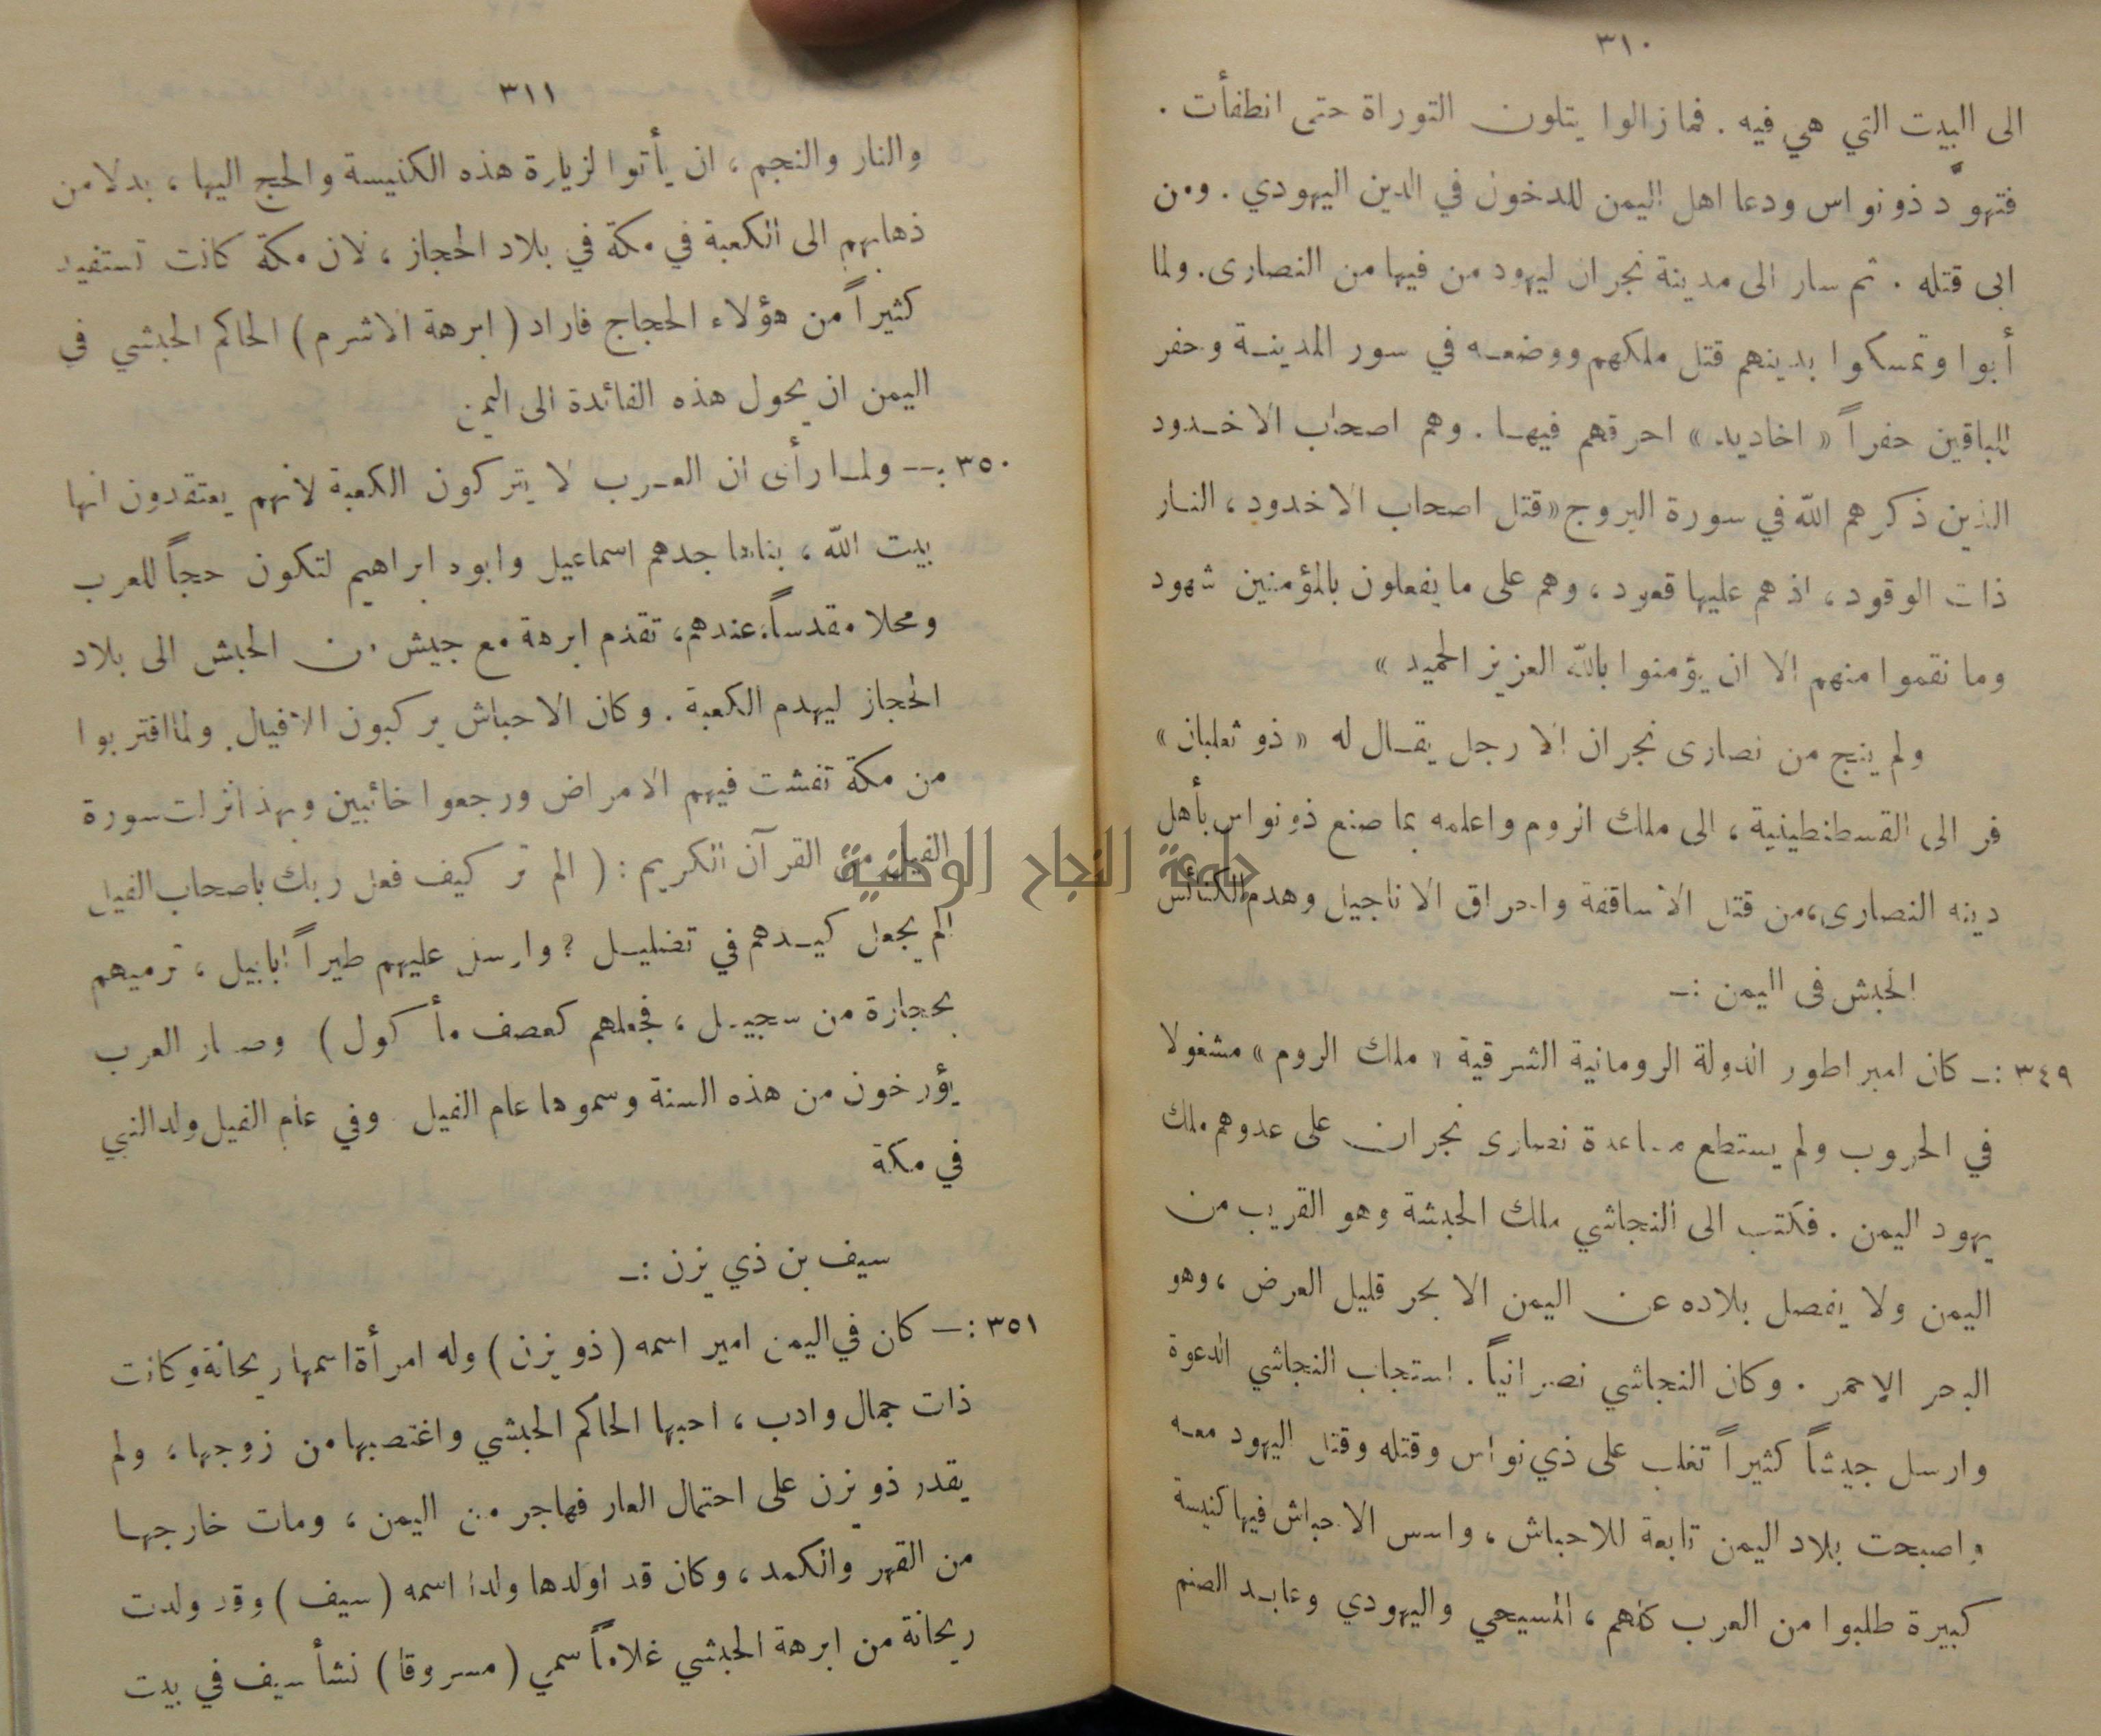 ٣١٠
الى البيت التي هي فيه . فما زالوا يتلون التوراة حتى انطفأت .
فتهوَّد ذو نواس ودعا اهل اليمن للدخول في الدين اليهودي . ومن
ابى قتله . ثم سار الى مدينة نجران ليهود من فيها من النصارى . ولما
أبوا وتمسكوا بدينهم قتل ملكهم ووضعه في سور المدينة وحفر
للباقين حفراً « اخاديد » احرقهم فيها . وهم اصحاب الاخدود
الذين ذكرهم الله في سورة البروج « قتل اصحاب الاخدود ، النار
ذات الوقود ، اذ هم عليها قعود ، وهم على ما يفعلون بالمؤمنين شهود
وما نقموا منهم الا ان يؤمنوا بالله العزيز الحميد »
ولم ينج من نصارى نجران الا رجل يقال له « ذو ثعلبان »
فر الى القسطنطينية ، الى ملك الروم واعلمه بما صنع ذو نواس بأهل
دينه النصارى ، من قتل الاساقفة واحراق الاناجيل وهدم الكنائس
الحبش في اليمن :ـ
٣٤٩ :ـ كان امبراطور الدولة الرومانية الشرقية « ملك الروم » مشغولا
في الحروب ولم يستطع مساعدة نصارى نجران على عدوهم ملك
يهود اليمن . فكتب الى النجاشي ملك الحبشة وهو القريب من
اليمن ولا يفصل بلاده عن اليمن الا بحر قليل العرض ، وهو
البحر الاحمر . وكان النجاشي نصرانياً . استجاب النجاشي الدعوة
وارسل جيشاً كثيراً تغلب على ذي نواس وقتله وقتل اليهود معه
واصبحت بلاد اليمن تابعة للاحباش ، واسس الاحباش فيها كنيسة
كبيرة طلبوا من العرب كلهم ، المسيحي واليهودي وعابد الصنم
٣١١
والنار والنجم ، ان يأتوا لزيارة هذه الكنيسة والحج اليها ، بدلا من
ذهابهم الى الكعبة في مكة في بلاد الحجاز ، لان مكة كانت تستفيد
كثيراً من هؤلاء الحجاج فاراد ( ابرهة الاشرم ) الحاكم الحبشي في
اليمن ان يحول هذه الفائدة الى اليمن
٣٥٠ :ـ ولما رأى ان العرب لا يتركون الكعبة لانهم يعتقدون انها
بيت الله ، بناها جدهم اسماعيل وابوه ابراهيم لتكون حجاً للعرب
ومحلا مقدساً عندهم ، تقدم ابرهة مع جيش من الحبش الى بلاد
الحجاز ليهدم الكعبة . وكان الاحباش يركبون الافيال . ولما اقتربوا
من مكة تفشت فيهم الامراض ورجعوا خائبين وبهذا نزلت سورة
الفيل من القرآن الكريم : ( الم تر كيف فعل ربك باصحاب الفيل
الم يجعل كيدهم في تضليل ؟ وارسل عليهم طيراً ابابيل ، ترميهم
بحجارة من سجيل ، فجعلهم كعصف مأكول ) وصار العرب
يؤرخون من هذه السنة وسموها عام الفيل . وفي عام الفيل ولد النبي
في مكة
سيف بن ذي يزن :ـ
٣٥١ :ـ كان في اليمن امير اسمه ( ذو يزن ) وله امرأة اسمها ريحانة وكانت
ذات جمال وادب ، احبها الحاكم الحبشي واغتصبها من زوجها ، ولم
يقدر ذو يزن على احتمال العار فهاجر من اليمن ، ومات خارجها
من القهر والكمد ، وكان قد اولدها ولدا اسمه ( سيف ) وقد ولدت
ريحانة من ابرهة الحبشي غلاماً سمي ( مسروقا ) نشأ سيف في بيت
جامعة النجاح الوطنية